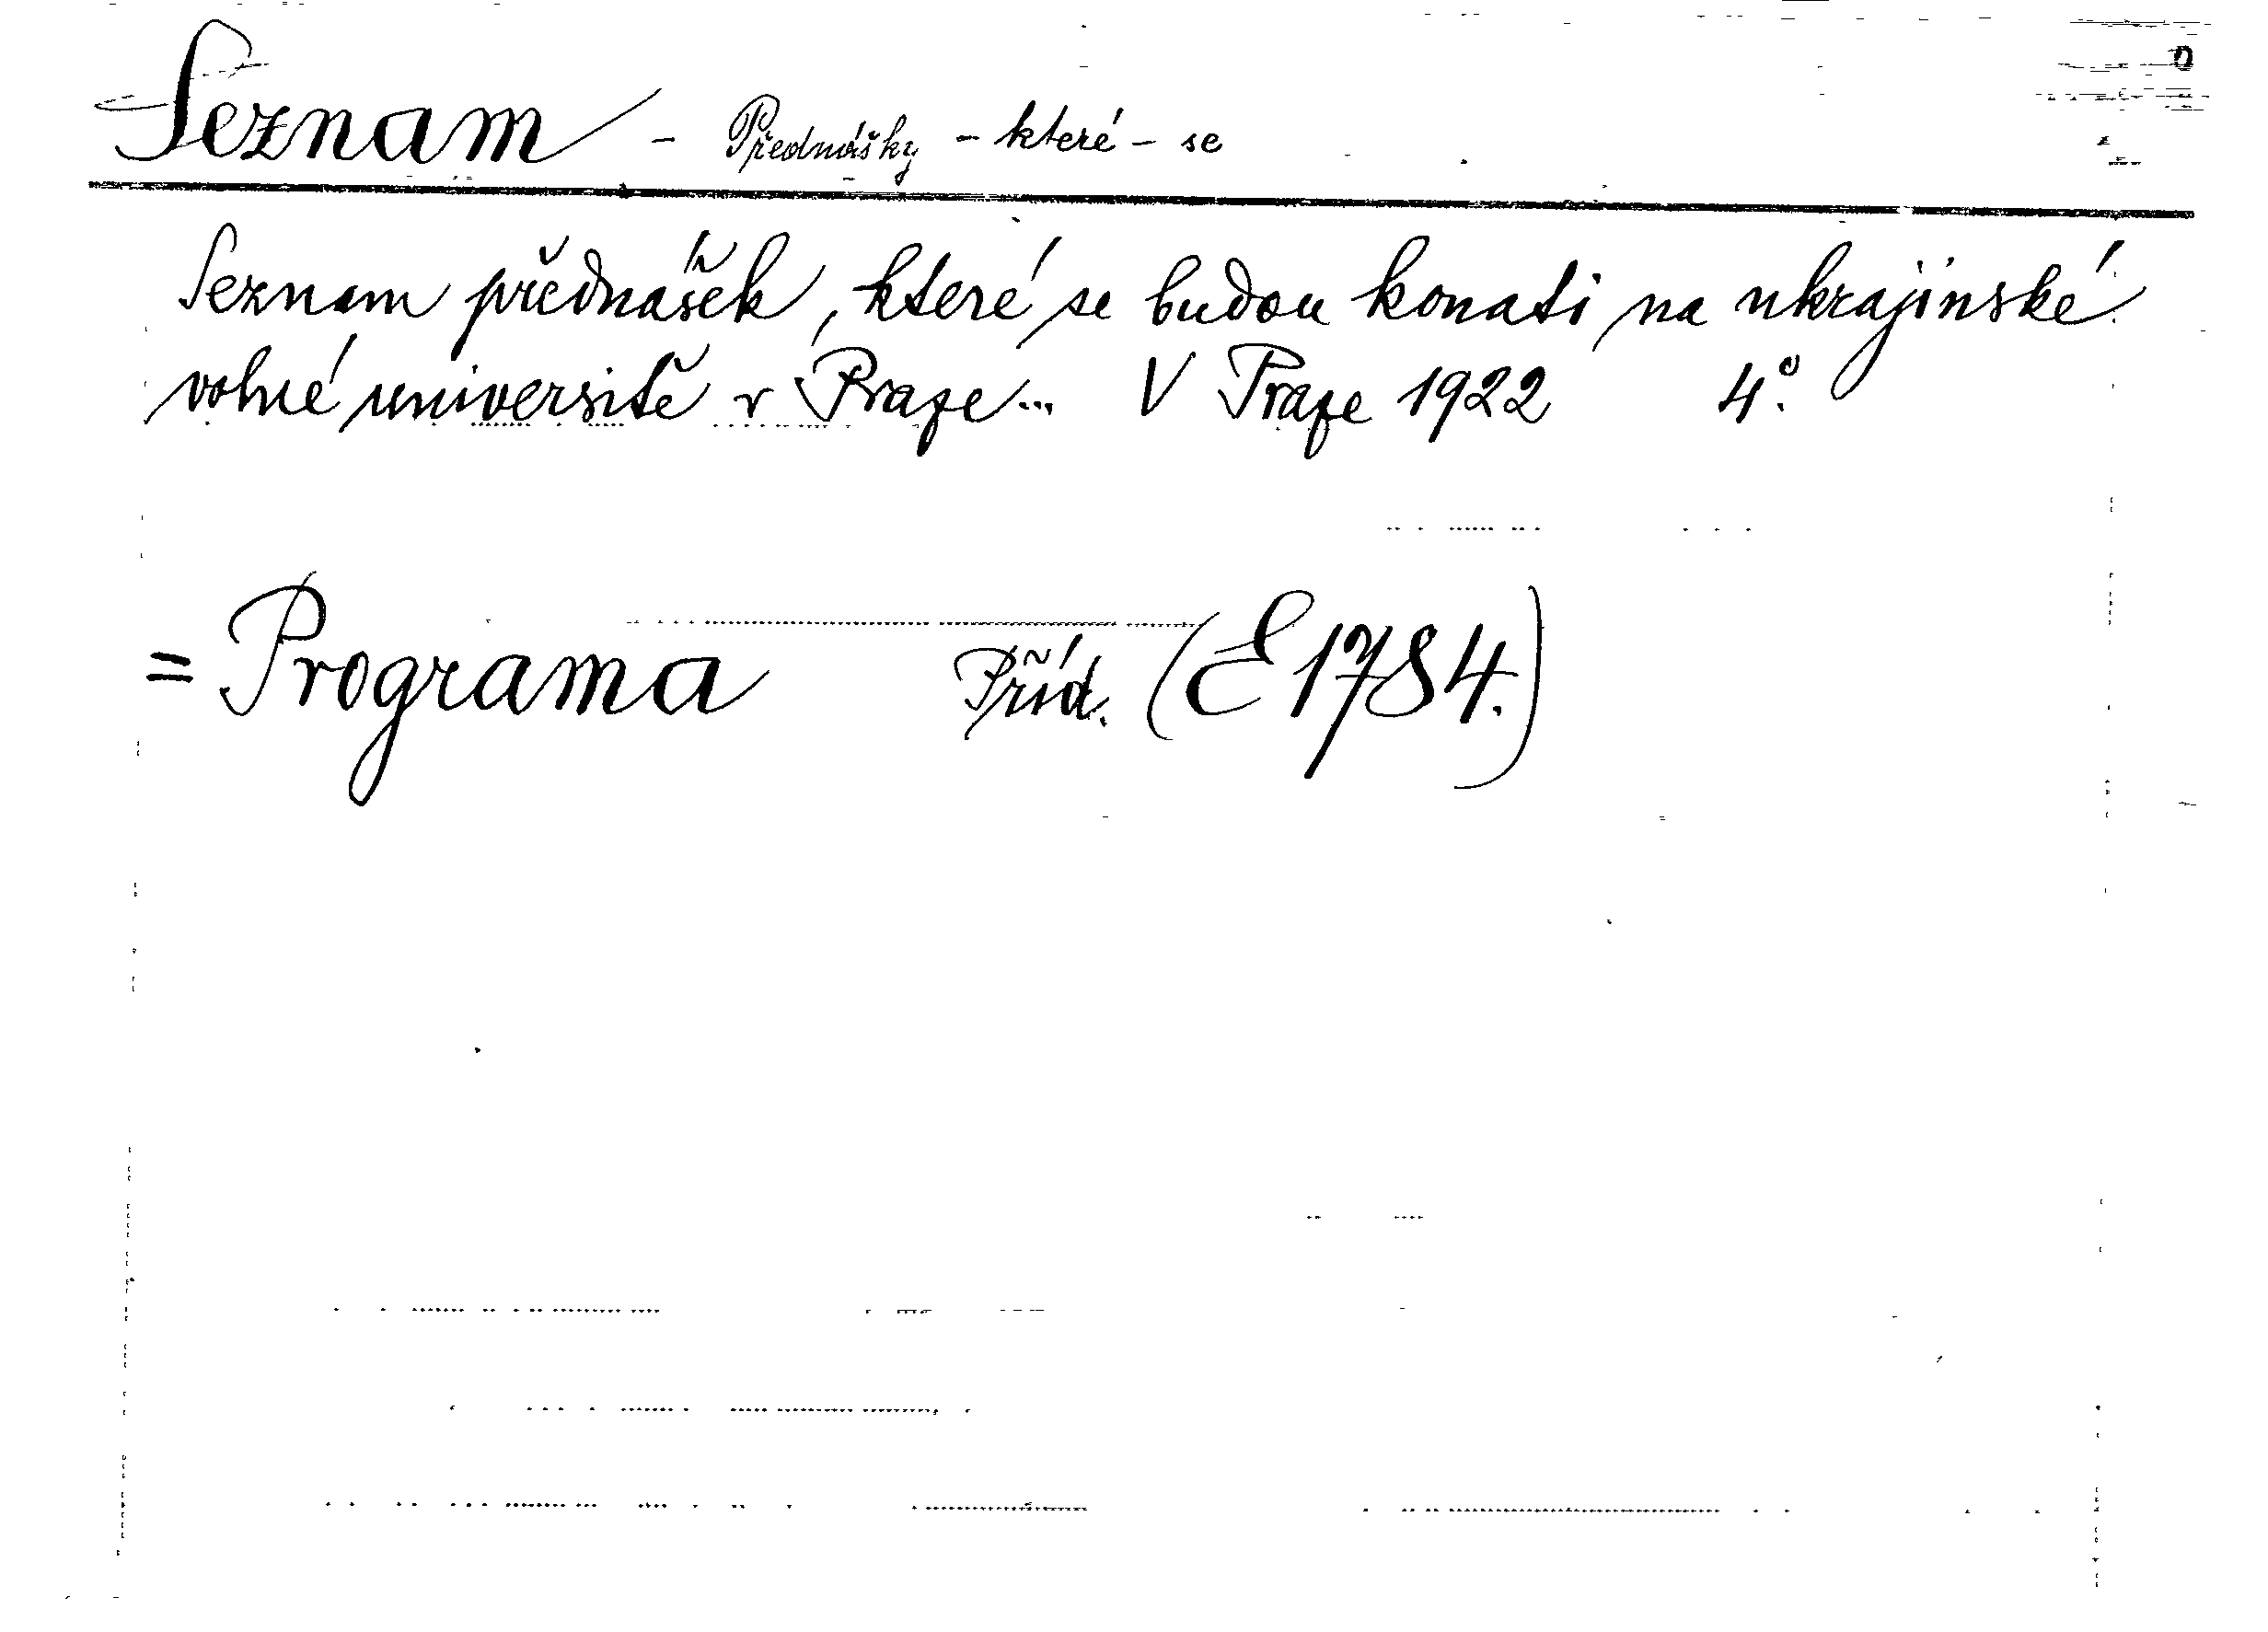 Seznam - Přednášky - které - se
Seznam přednášek, které se budou konati na ukrajinské
volné universitě v Praze... V Praze 1922 4°.
= Programa Příd. (E 1784.)